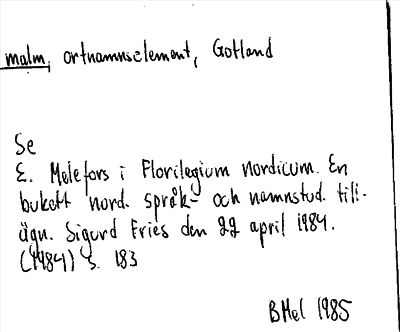 malm, ortnamnselement, Gotland
Se
E. Melefors i Florilegium nordicum. En
bukett nord. språk- och namnstud. till-
ägn. Sigurd Fries den 22 april 1984.
(1984) s. 183
BMel 1985